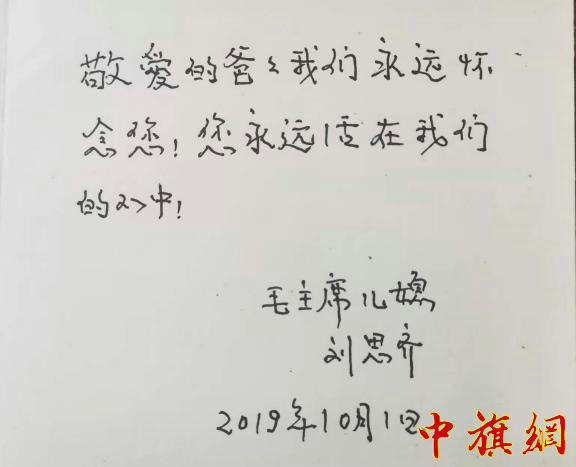 敬爱的爸々我们永远怀
念您!您永远活在我们
的心中!
毛主席儿媳
刘思齐
2019年10月1日
中旗網